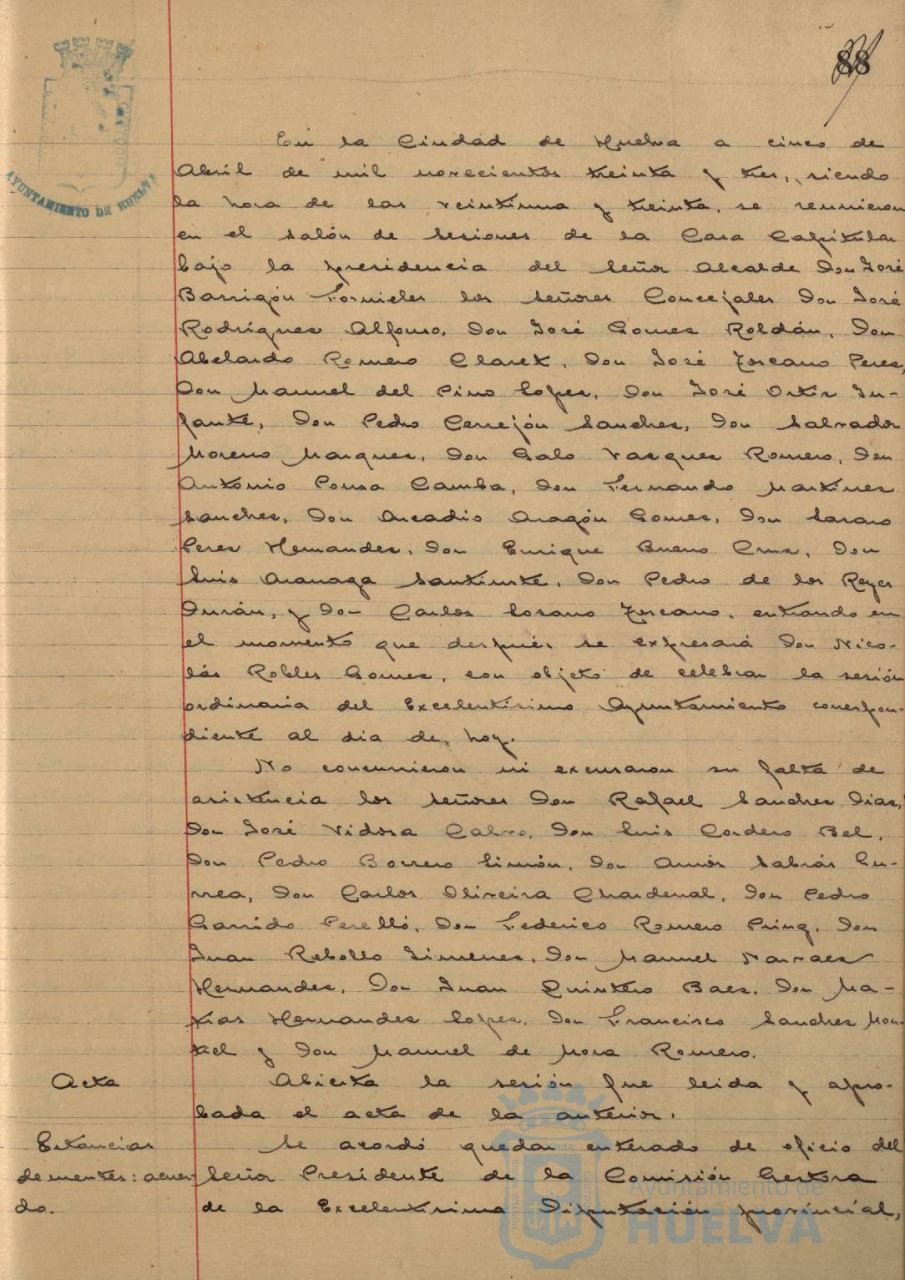 88
AYUNTAMIENTO DE HUELVA
En la Ciudad de Huelva a cinco de
Abril de mil novecientos treinta y tres, siendo
la hora de las veintiuna y treinta, se reunieron
en el salón de sesiones de la Casa Capitular
bajo la presidencia del Señor Alcalde Don José
Barrigón Fornieles los señores Concejales Don José
Rodrígues Alfonso, Don José Gomes Roldán, Don
Abelardo Romero Claret, Don José Toscano Peres,
Don Manuel del Pino Lopes, Don José Ortis In-
fante, Don Pedro Cerrejón Sanches, Don Salvador
Moreno Marques, Don Galo Vasques Romero, Don
Antonio Ponsa Camba, Don Fernando Martínes
Sanches, Don Arcadio Aragón Gomes, Don Lasaro
Peres Hernandes, Don Enrique Bueno Crus, Don
Luis Aranaga Santiuste, Don Pedro de los Reyes
Durán, y Don Carlos Losano Toscano, entrando en
el momento que después se expresará Don Nico-
lás Robles Gomes, con objeto de celebrar la sesión
ordinaria del Excelentísimo Ayuntamiento correspon-
diente al dia de, hoy.
No concurrieron ni excusaron su falta de
asistencia los señores Don Rafael Sanches Dias,
Don José Vidosa Calvo, Don Luis Cordero Bel,
Don Pedro Borrero Limón, Don Amós Sabrás Gu-
rrea, Don Carlos Oliveira Chardenal, Don Pedro
Garrido Perelló, Don Federico Romero Pring, Don
Juan Rebollo Jimenes, Don Manuel Narvaes
Hernandes, Don Juan Quintero Baes, Don Ma-
tias Hernandes Lopes, Don Francisco Sanches Mon-
tiel y Don Manuel de Mora Romero.
Acta
Abierta la sesión fue leida y apro-
bada el acta de la anterior.
Estancias
dementes: acuer-
do.
Se acordó quedar enterado de oficio del
Señor Presidente de la Comisión Gestora
de la Excelentísima Diputación provincial,
Ayuntamiento de
HUELVA